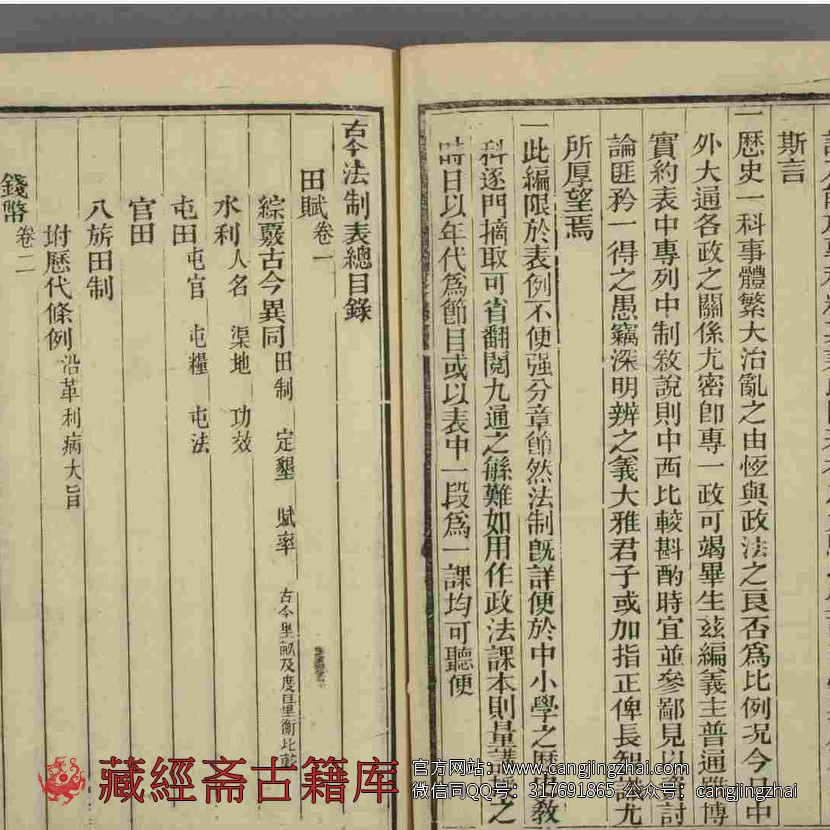 斯言
一歷史一科事體繁大治亂之由恆與政法之良否爲比例況今日中
外大通各政之關係尤密卽專一政可竭畢生茲編義主普通雖博
實約表中專列中制敘說則中西比較斟酌時宜並參鄙見以資討
論匪矜一得之愚竊深明辨之義大雅君子或加指正俾長知識尤
所厚望焉
一此編限於表例不便强分章節然法制旣詳便於中小學之歷史敎
科逐門摘取可省翻閱九通之繇難如用作政法課本則量講之
時日以年代爲節目或以表中一段爲一課均可聽便
古今法制表總目錄
田賦卷一
綜覈古今異同田制 定墾 賦率 古今里畝及度量衡比較
水利人名 渠地 功效
屯田屯官 屯糧 屯法
官田
八旂田制
坿歷代條例沿革利病大旨
錢幣卷二
藏經斋古籍库
官方网站：www.cangjingzhai.com
微信同QQ号：317691865 公众号：cangjingzhai